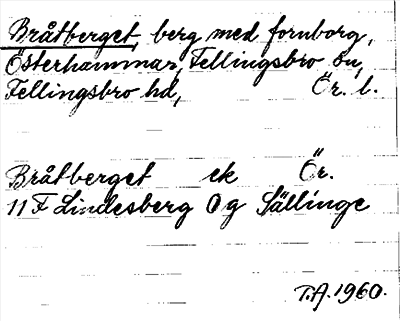 Bråtberget, berg med fornborg,
Österhammar, Fellingsbro sn,
Fellingsbro hd, Ör. l.
Bråtberget ek Ör.
11 F Lindesberg 0 g Sällinge
T.A. 1960.